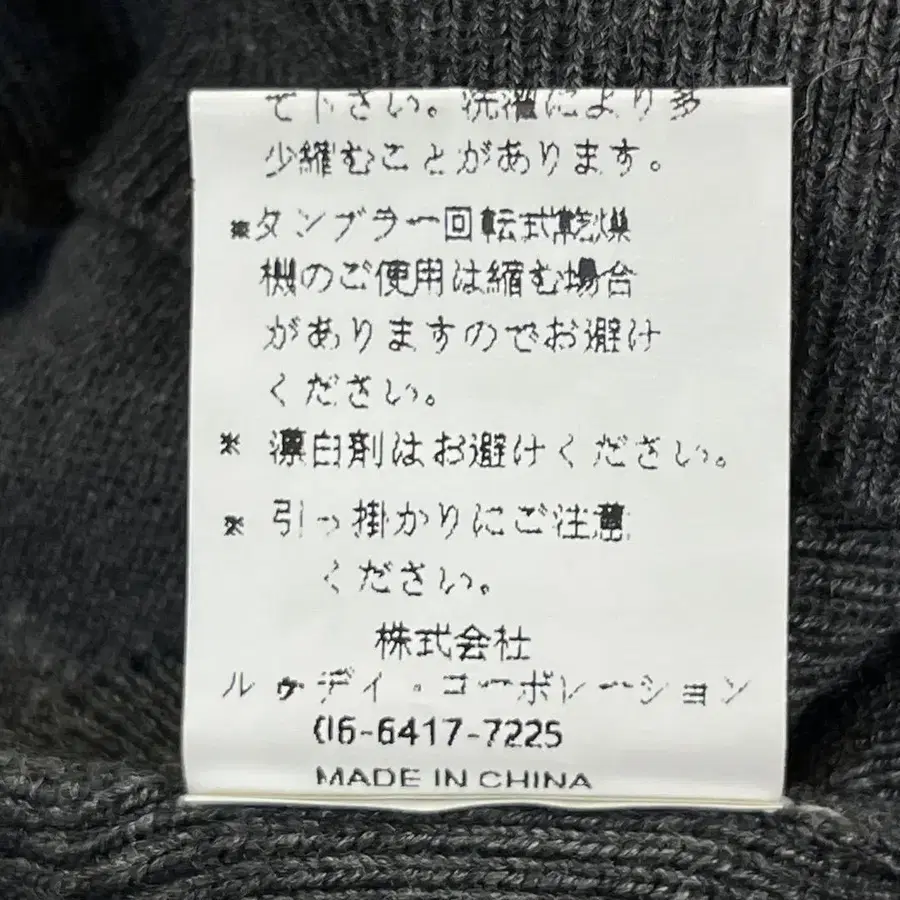 て下さい。洗濯により多
少縮むことがあります。
※タンブラー回転式乾燥
機のご使用は縮む場合
がありますのでお避け
ください。
※ 漂白剤はお避けください。
※ 引っ掛かりにご注意
ください。
株式会社
ルゥディ・コーポレーション
06-6417-7225
MADE IN CHINA